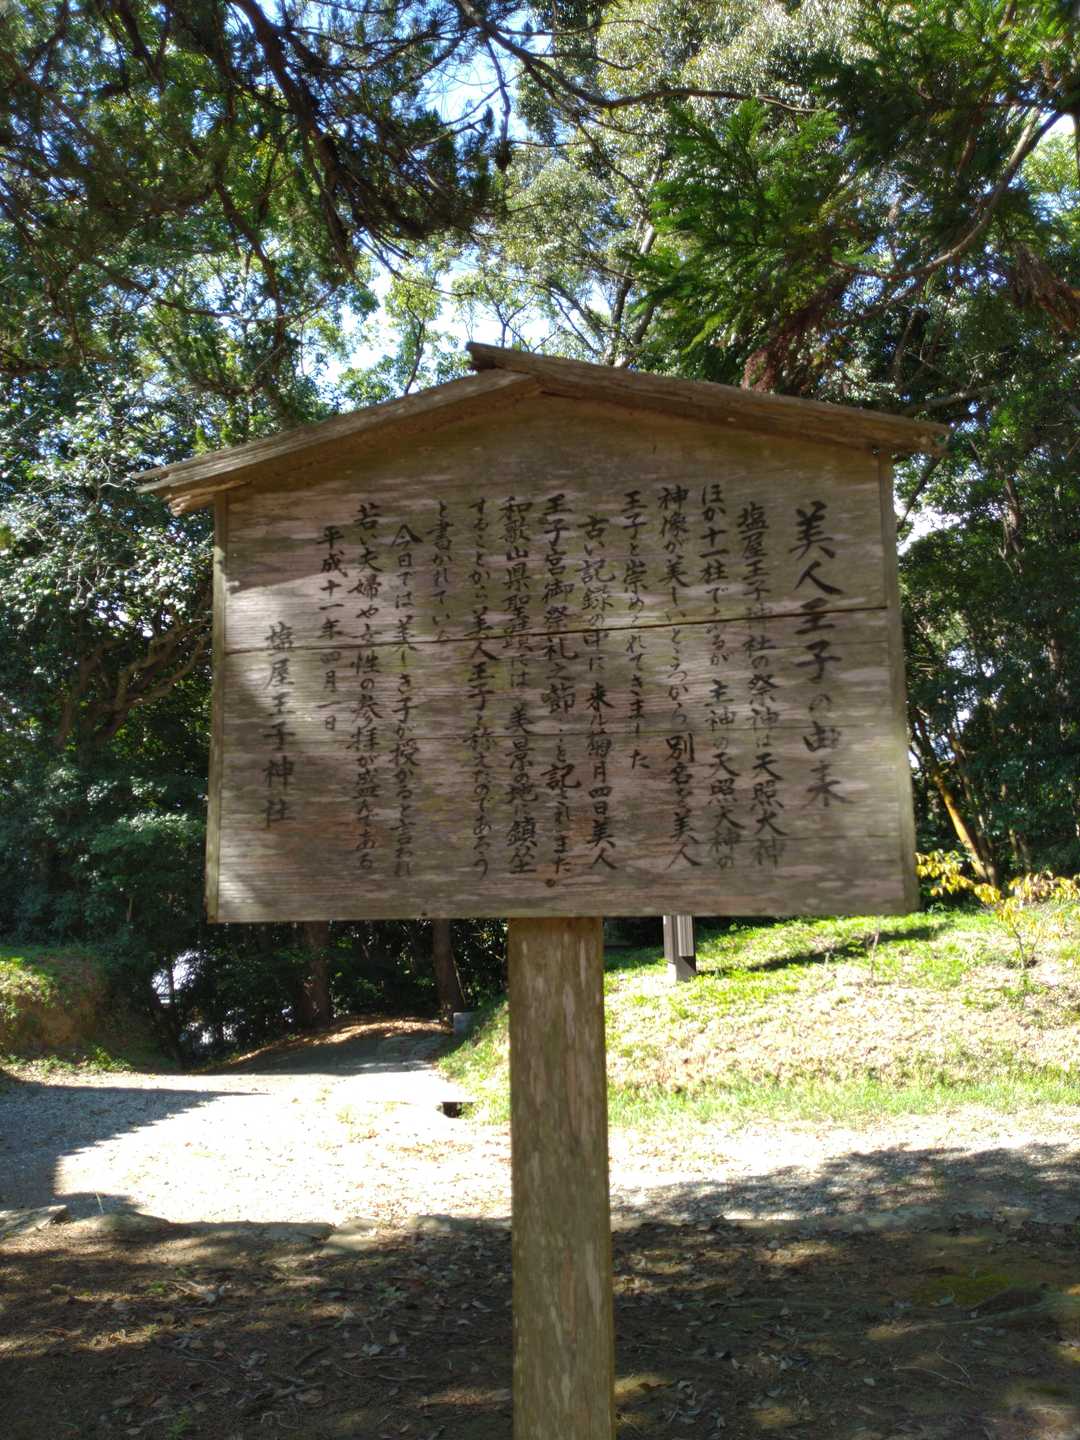 美人王子の由来
塩屋王子神社の祭神は天照大神
ほか十一柱であるが主神の天照大神の
神像が美しいところから別名を美人
王子と崇められてきました
古い記録の中に来ル菊月四日美人
王子宮御祭礼之節‥と記されまた
和歌山県聖蹟には美景の地に鎮座
することから美人王子と称えたのであろう
と書かれている
今日では美しき子が授かると言われ
若い夫婦や女性の参拝が盛んである
平成十一年四月一日
塩屋王子神社